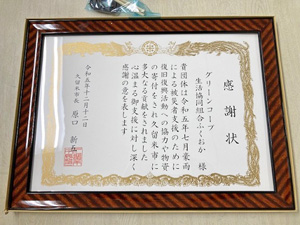 感謝状
グリーンコープ
生活協同組合ふくおか 様
貴団体は令和五年七月豪雨
による被災者支援のために
復旧復興活動への協力や物資
の寄付をされ久留米市に
多大なる貢献をされました
心温まる御支援に対し深く
感謝の意を表します
令和五年十二月十二日
久留米市長 原口 新五